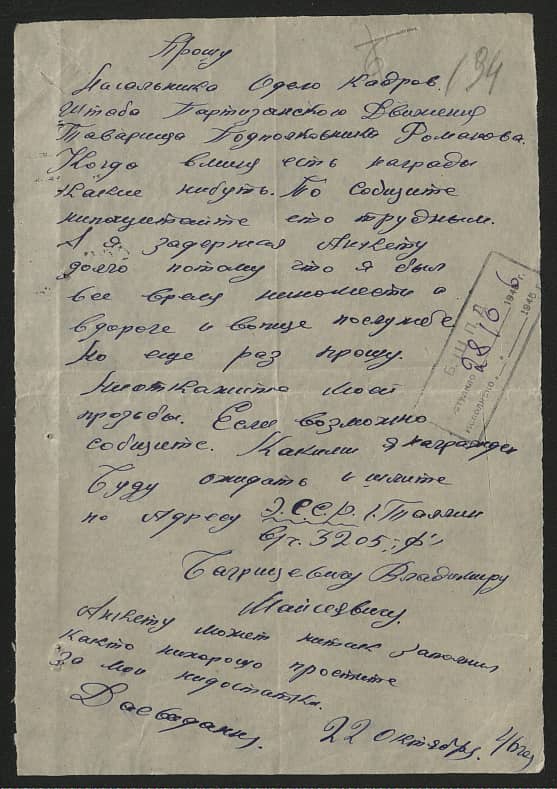 Прошу
194
Начальника Одело Кадров.
Штаба Партизанского Движения
Таварища Подполковника Романова.
Когда вминя есть награды
какие нибуть. То собщите
нипощитайте ето трудным.
А я задержал Анкету
долго потому что я был
все время нинамести а
вдороге и вопще послужбе
Но еще раз прошу.
Ниоткажите моей
прозьбы. Если возможно
собщите. Какими я награжден
Буду ожидать и шлите
по Адресу Э.ССР. г. Таллин
в/ч. 3205 "Ф"
Багрицевичу Владимиру
Майсеевичу.
Анкету может нитак заполнил
както нихорошо простите
За мои нидостатки.
Дасвидания.
22 октября 46 год
Б.Ш.П.Д.
28/X 1946 г.
1946 г.